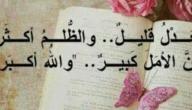 عدلُ قليلٌ.. والظُّلمُ أكثر
نَّ الأمَل كَبيرٌ.. "واللهُ أكبر